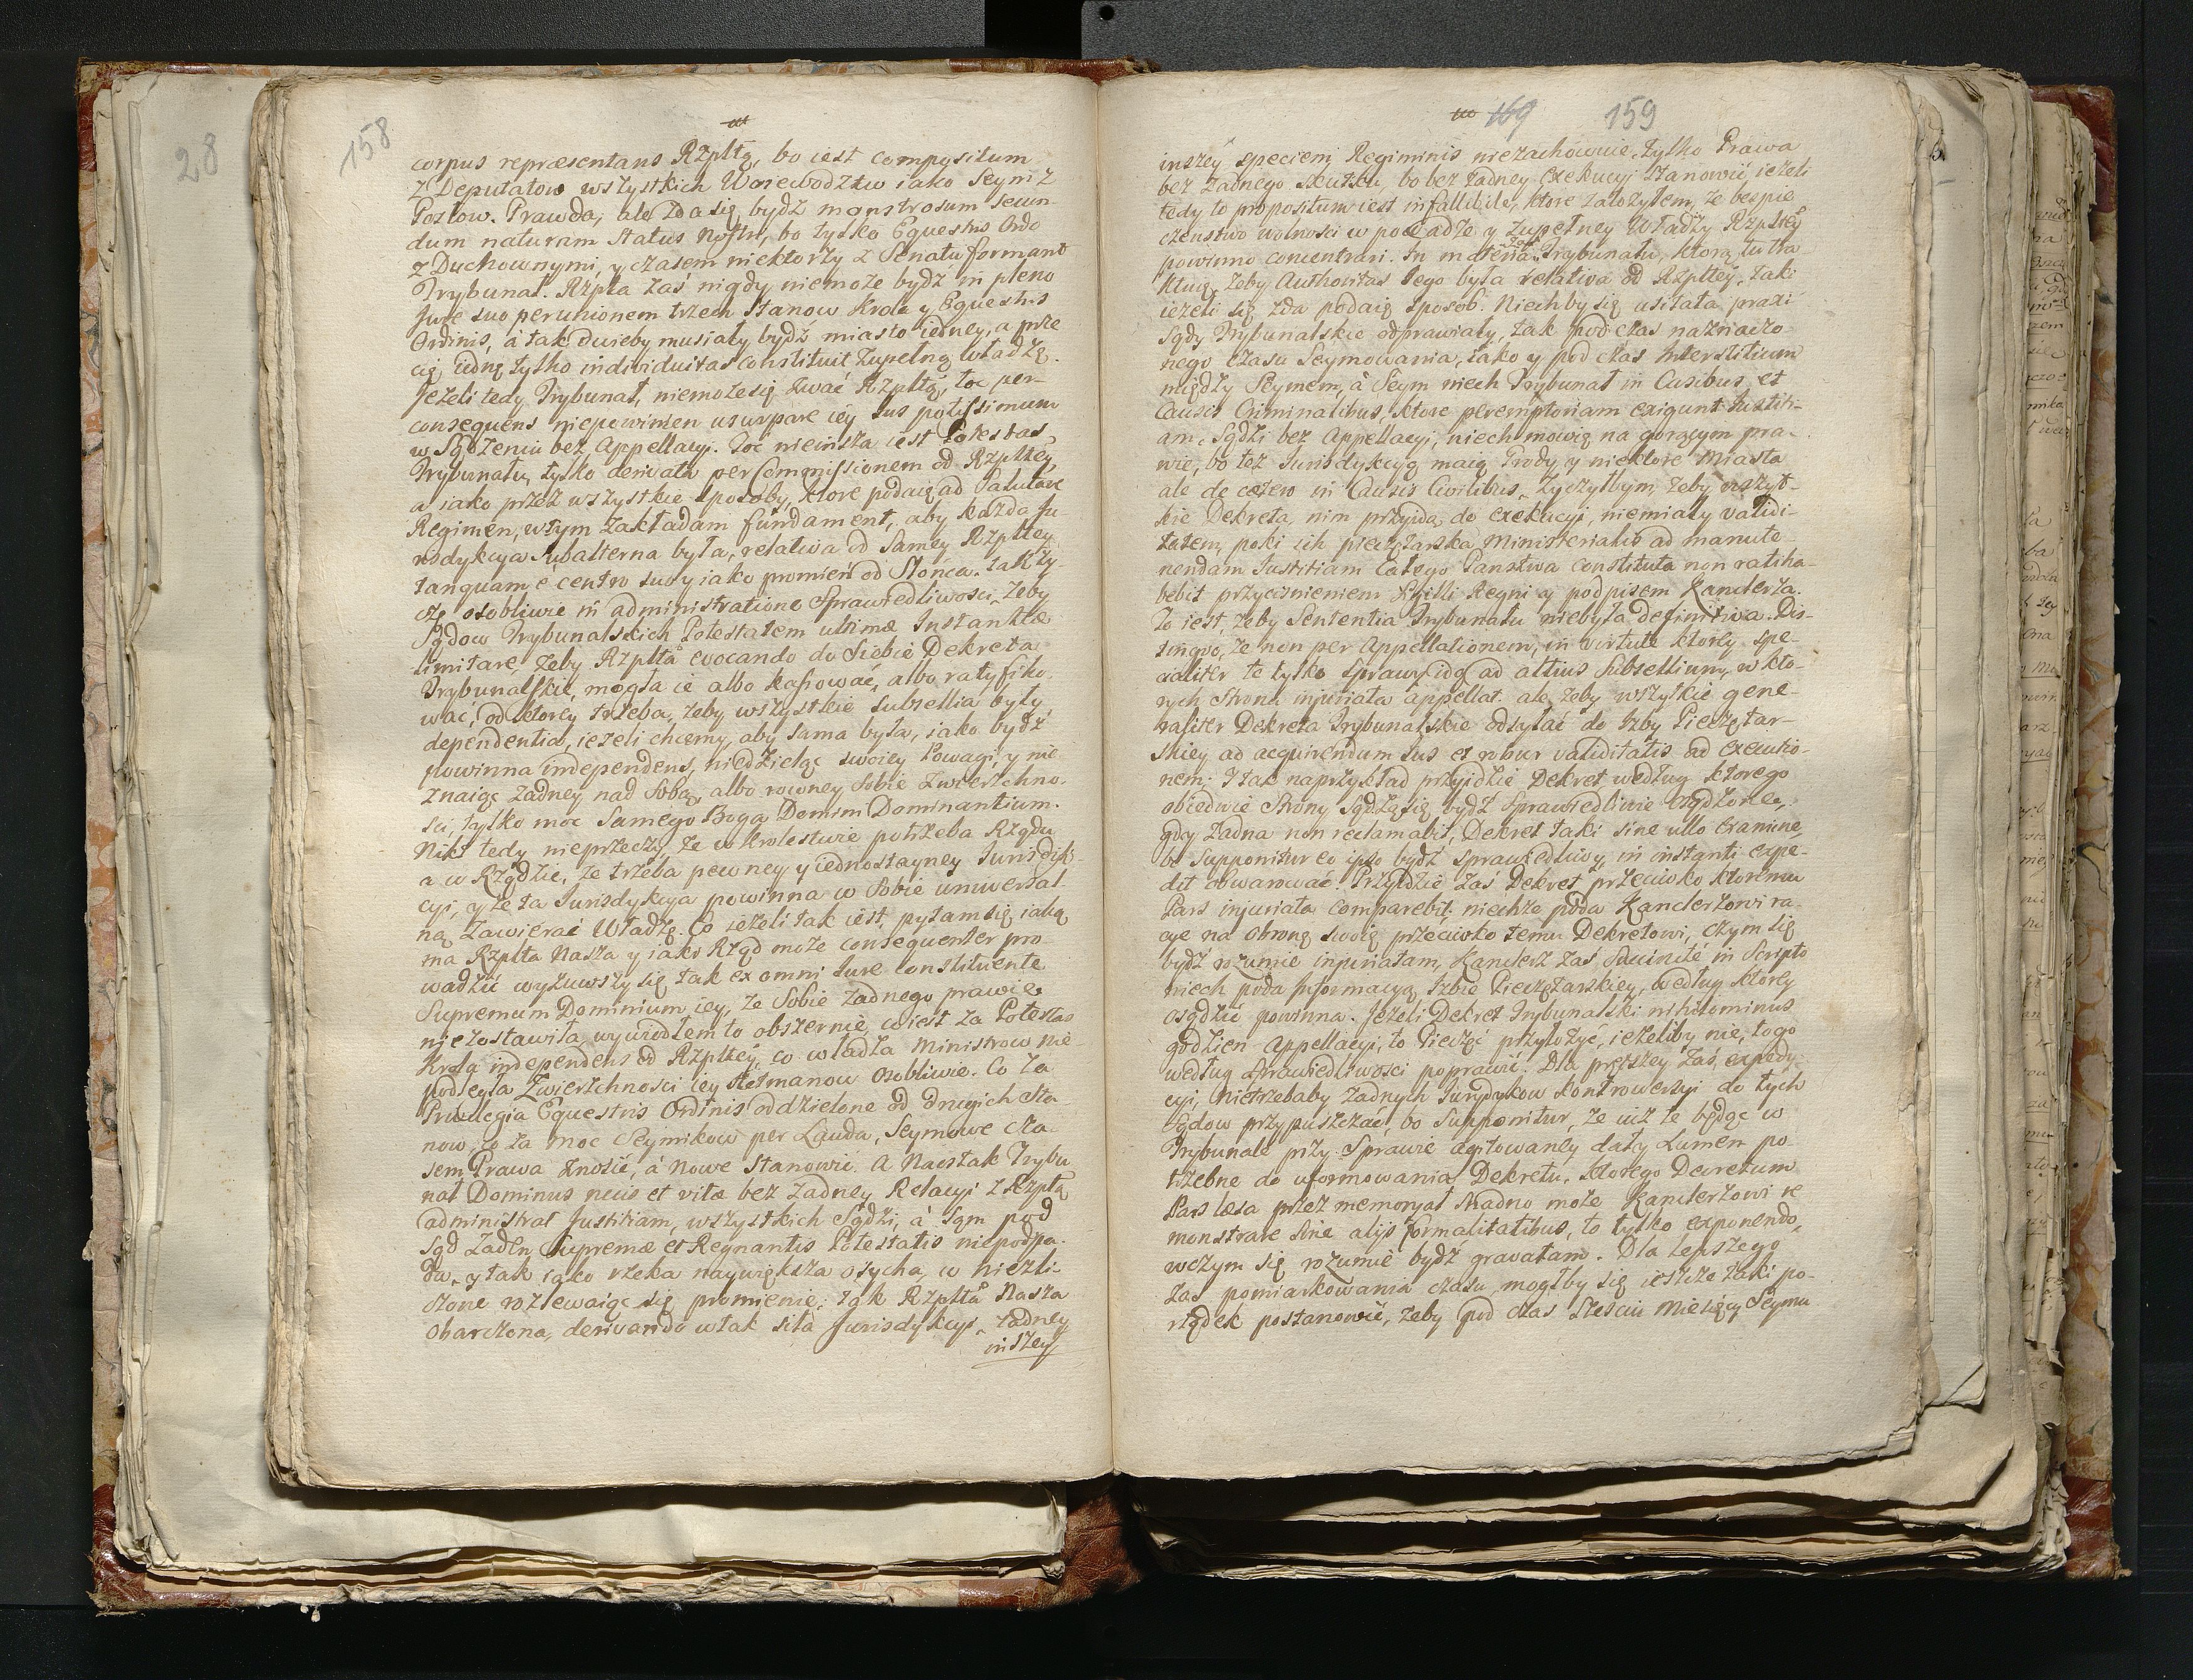 28
158
corpus repræsentans Rzpltą, bo iest compositum
z Deputatow wszystkich Woiewodztw iako Seym z
Posłow. Prawda, ale zda się bydź monstrosum secun-
dum naturam Status Nostri, bo tylko Equestris Ordo
z Duchownymi, y czasem niektorzy z Senatu formant
Trybunał. Rzplta zaś nigdy niemoże bydź in pleno
Jure suo per unionem trzech Stanow Krola y Equestris
Ordinis, á tak Dwieby musiały bydź miasto iedney, a prze
cię iedną tylko individuitas constituit zupełną władzę.
Jeżeli tedy Trybunał, niemoże się zwać Rzpltą, toc per
consequens niepowinien usurpare iey Jus potissimum
w Sądzeniu bez Appellacyi. Toć nieinsza iest Potestas
Trybunału, tylko derivata per Commissionem od Rzpltey,
a iako przez wszystkie sposoby, ktore podaię ad Salutare
Regimen, w tym zakładam fundament, aby każda Ju-
rysdykcya Subalterna była, relativa od Samey Rzpltey
tanquam e centro suo y iako promień od Słońca. tak ży-
czę osobliwie in administratione Sprawiedliwosci, żeby
Sądow Trybunalskich Potestatem ultimæ Instantiæ
limitare, żeby Rzplta evocando do Siebie Dekreta
Trybunalskie, mogła ie albo kassować, albo ratyfiko-
wać, od ktorey trzeba, żeby wszystkie Subsellia były
dependentia, ieżeli chcemy, aby Sama była, iako bydź
powinna independens, niedzieląc swoiey Powagi, y nie
znaiąc żadney nad Sobą, albo rowney Sobie Zwierzchno-
sci, tylko moc Samego Boga Domini Dominantium.
Nikt tedy nieprzeczy, że w Krolestwie potrzeba Rządu,
a w Rządzie, że trzeba pewney y iednostayney Jurisdyk-
cyi, y że ta Jurisdykcya powinna w Sobie uniwersal-
ną zawierać Władzę. Co ieżeli tak iest, pytam się iaką
ma Rzplta Nasza y iako Rząd może consequenter pro-
wadzić wyzuwszy się tak ex omni Jure constituente
Supremum Dominium iey, że Sobie żadnego prawie
niezostawiła, wywiodłem to obszernie, co iest za Potestas
Krola independens od Rzpltey, co władza Ministrow nie
podległa Zwierzchności iey Hetmanow Osobliwie. Co za
Privilegia Equestris Ordinis oddzielone od drugich Sta-
now, co za moc Seymikow per Lauda, Seymowe cza-
sem Prawa znosić, á Nowe Stanowić. A Naostatek Trybu
nał Dominus necis et vitæ bez żadney Relacyi z Rzpltą
administrat Justitiam, wszystkich Sądzi, á Sam pod
Sąd żaden Supremæ et Regnantis Potestatis niepodpa-
da, y tak iako rzeka naywiększa osycha, w niezli-
czone rozlewaiąc się promienie; tak Rzplta Nasza
obarczona, derivando w tak siła Jurisdykcyi, żadney
inszey
169 159
inszey speciem Regiminis niezachowuie, tylko Prawa
bez żadnego skutku, bo bez żadney exekucyi stanowić, ieżeli
tedy to propositum iest infallibile, ktore założyłem, że bespie
czenstwo wolności w posadze y zupełney Władzy Rzpltey
powinno concentrari. In materia Trybunału, ktorą tu tra-
ktuię, żeby Authoritas Jego była relativa od Rzpltey, taki
ieżeli się zda podaię sposob. Niechby się usitata praxi
Sądy Trybunalskie odprawiały, tak pod czas naznaczo-
nego czasu Seymowania, iako y pod czas Interstitium
między Seymem, á Seym niech Trybunał in Casibus et
Causis Criminalibus, ktore peremptoriam exigunt Justiti-
am, Sądzi bez Appellacyi, niech mowię na gorącym pra-
wie, bo też Jurisdykcyą maią Grody y niektore Miasta
ale de cætero in Causis Civilibus, życzyłbym, żeby wszyt-
kie Dekreta, nim przyidą do exekucyi, niemiały validi-
tatem, poki ich pieczętarska Ministerialis ad manute-
nendam Justitiam całego Panstwa constituta non ratiha-
bebit przycisnieniem Sigilli Regni y podpisem Kanclerza.
To iest, żeby Sententia Trybunału niebyła definitiva. Dis-
tingvo, że non per Appellationem, in virtute ktorey spe-
cialiter te tylko sprawy idą ad altius Subsellium, w kto-
rych strona injuriata appellat. ale żeby wszytkie gene-
raliter Dekreta Trybunalskie odsyłać do Izby Pieczętar-
skiey ad acquirendum Jus et robur validitatis ad executio-
nem. Itak naprzykład przyidzie Dekret, według ktorego
obiedwie strony sądzą się bydź Sprawiedliwie osądzone,
gdy żadna non reclamabit, Dekret taki sine ullo examine,
bo supponitur eo ipso bydź sprawiedliwy, in instanti expe-
dit obwarować. Przyidzie zaś Dekret przeciwko ktoremu
Pars injuriata comparebit: niechże poda Kanclerzowi ra-
cye na obronę swoię przeciwko temu Dekretowi, czym się
bydź rozumie injuriatam, Kanclerz zaś Succinté in Scripto
niech poda Informacyą Izbie Pieczętarskiey, według ktorey
osądzić powinna. Jeżeli Dekret Trybunalski nihilominus
godzien appellacyi, to Pieczęć przyłożyć, ieżeliby nie, to go
według sprawiedliwości poprawić. Dla prętszey zaś expedy-
cyi, nietrzebaby żadnych Jurydykow kontrowersyi do tych
Sądow przypuszczać, bo supponitur, że iuż te będąc w
Trybunale przy Sprawie agitowaney dały Lumen po-
trzebne do uformowania Dekretu, ktorego Decretum
Pars læsa przez memoryał snadno może Kanclerzowi re
monstrare sine alijs formalitatibus, to tylko exponendo,
w czym się rozumie bydź gravatam. Dla lepszego
zas pomiarkowania czasu, mogłby się ieszcze taki po-
rządek postanowić, żeby pod czas sześciu Miesięcy Seymu